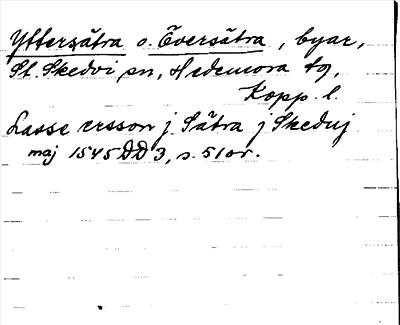 Yttersätra o. Översätra, byar,
St. Skedvi sn, Hedemora tg,
Kopp. l.
Lasse ersson j Sätra j Skedvj
maj 1545 DD 3, s. 51or.